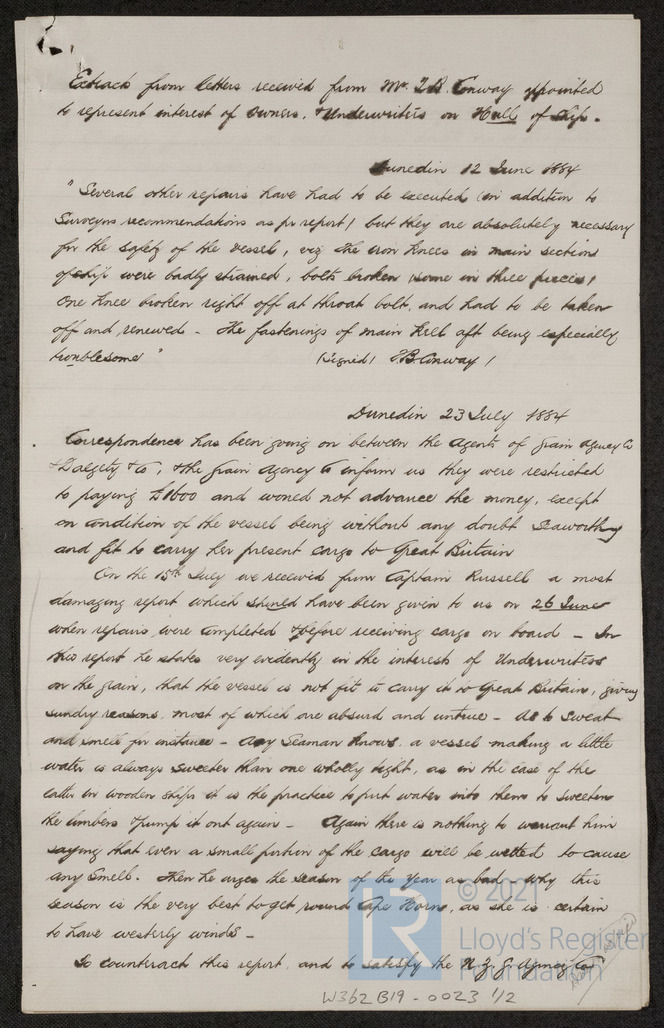 Extracts from letters received from Mr. T.B. Conway appointed
to represent interest of Owners, & Underwriters on Hull of Ship.
Dunedin 12 June 1884
"Several other repairs have had to be executed (in addition to
Surveyors recommendations as pr report) but they are absolutely necessary
for the safety of the vessel, viz the iron knees in main section
of ship were badly strained, bolts broken (some in three pieces)
One knee broken right off at throat bolt, and had to be taken
off and renewed - The fastenings of main keel aft being especially
troublesome" (signed) T.B. Conway)
Dunedin 23 July 1884
Correspondence has been going on between the Agents of Grain Agency Co
& Dalgety & Co, & the Grain Agency Co inform us they were restricted
to paying £1600 and would not advance the money, except
on condition of the vessel being without any doubt Seaworthy
and fit to carry her present cargo to Great Britain
On the 15th July we received from Captain Russell a most
damaging report which should have been given to us on 26 June
when repairs were completed & before receiving cargo on board - In
this report he states very evidently in the interest of Underwriters
on the grain, that the vessel is not fit to carry it to Great Britain, giving
sundry reasons most of which are absurd and untrue - As to Sweat
and smell for instance - Any Seaman knows a vessel making a little
water is always sweeter than one wholly tight, as in the case of the
latter in wooden ships it is the practice to put water into them to sweeten
the limbers & pump it out again - Again there is nothing to warrant him
saying that even a small portion of the cargo will be wetted to cause
any smell. Then he urges the season of the year as bad, why this
season is the very best to get round Cape Horn, as she is certain
to have westerly winds -
To counteract this report, and to satisfy the N.Z.G. Agency Co
© 2021
LR
Lloyd's Register
Foundation
W362B19-0023 1/2